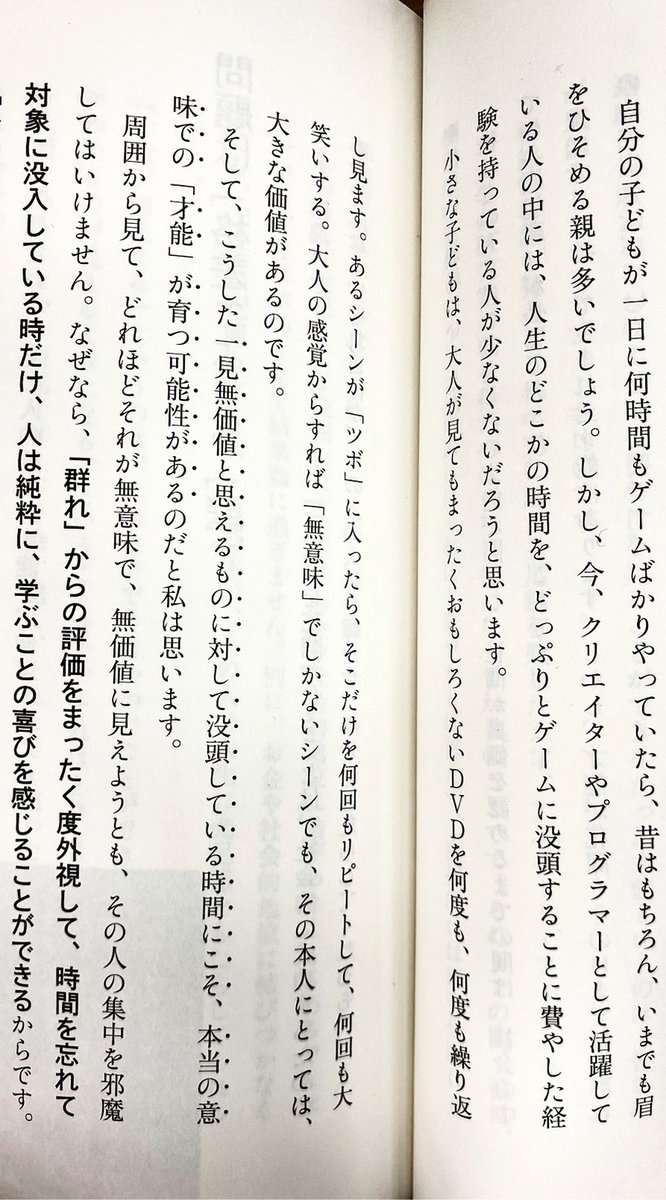 自分の子どもが一日に何時間もゲームばかりやっていたら、昔はもちろん、いまでも眉
をひそめる親は多いでしょう。しかし、今、クリエイターやプログラマーとして活躍して
いる人の中には、人生のどこかの時間を、どっぷりとゲームに没頭することに費やした経
験を持っている人が少なくないだろうと思います。
小さな子どもは、大人が見てもまったくおもしろくないDVDを何度も、何度も繰り返
し見ます。あるシーンが「ツボ」に入ったら、そこだけを何回もリピートして、何回も大
笑いする。大人の感覚からすれば「無意味」でしかないシーンでも、その本人にとっては、
大きな価値があるのです。
そして、こうした一見無価値と思えるものに対して没頭している時間にこそ、本当の意
味での「才能」が育つ可能性があるのだと私は思います。
周囲から見て、どれほどそれが無意味で、無価値に見えようとも、その人の集中を邪魔
してはいけません。なぜなら、「群れ」からの評価をまったく度外視して、時間を忘れて
対象に没入している時だけ、人は純粋に、学ぶことの喜びを感じることができるからです。